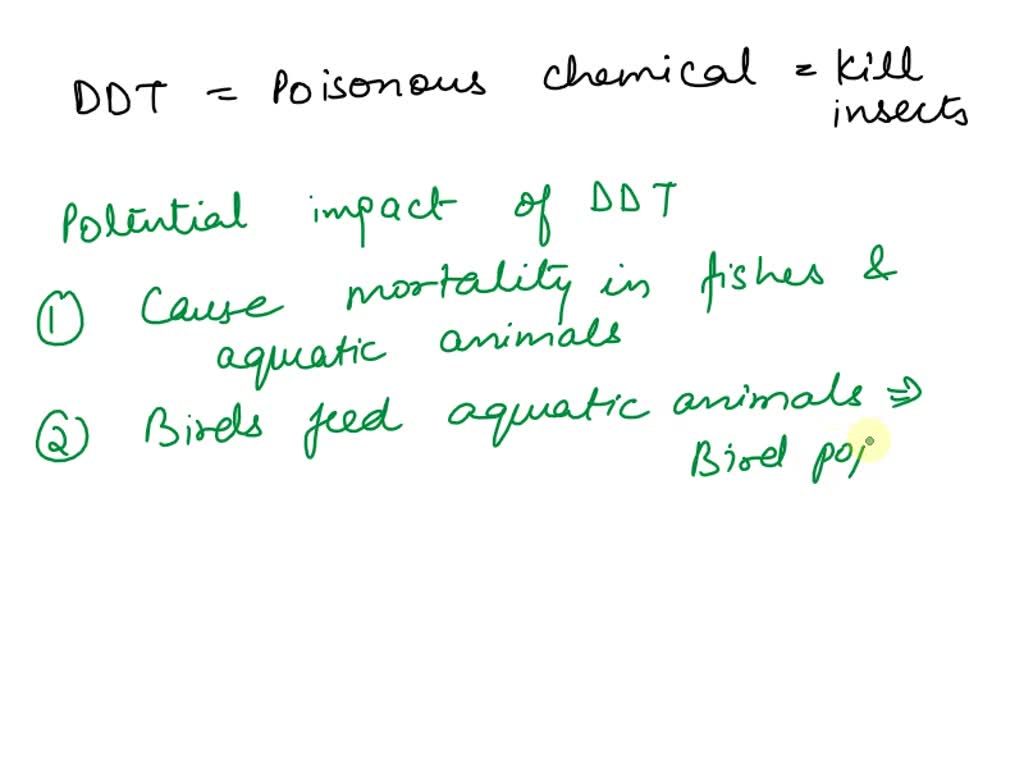 DDT = Poisonous chemical = Kill
insects
Potential impact of DDT
① Cause mortality in fishes &
aquatic animals
② Birds feed aquatic animals ⇒
Bird pop